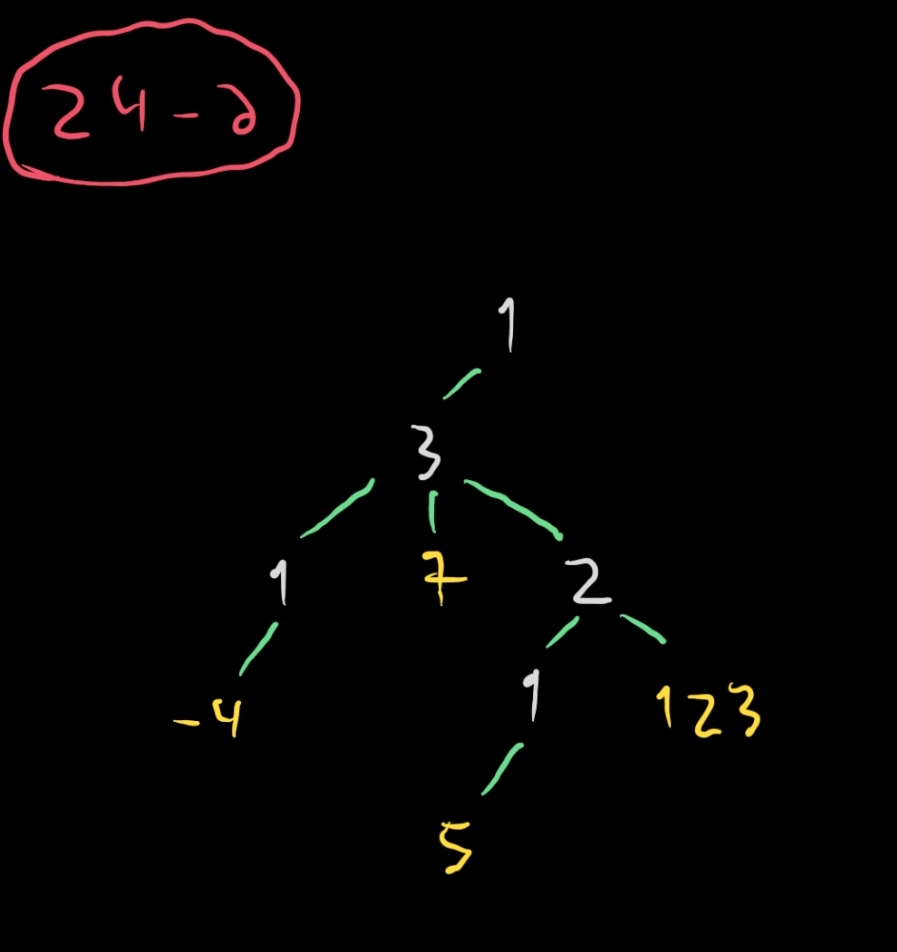 24-a
1
3
1 7 2
-4 1 123
5